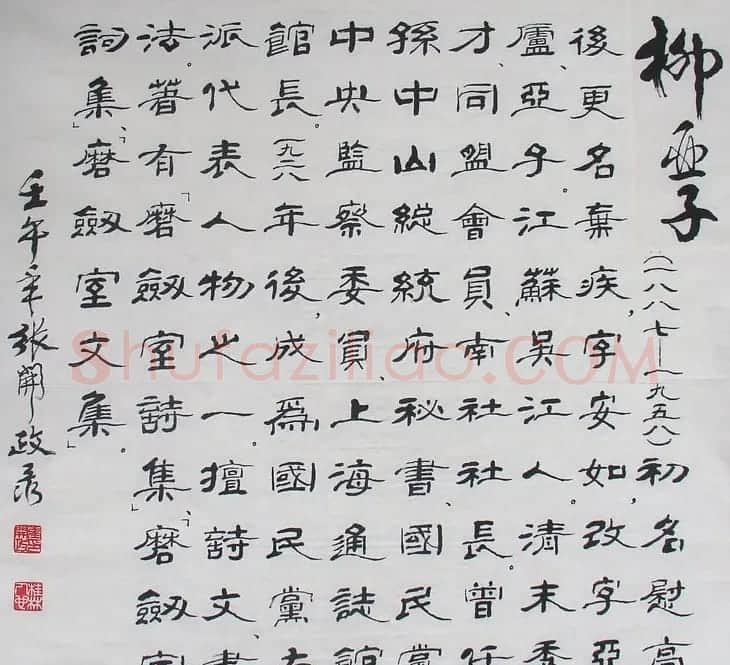 柳亞子（一八八七—一九五八）初名慰高
後更名棄疾，字安如，改字亞
廬、亞子。江蘇吳江人。清末秀
才、同盟會員、南社社長。曾任
孫中山總統府秘書、國民黨
中央監察委員、上海通誌館
館長。一九二八年後，成爲國民黨左
派代表人物之一。擅詩文、書
法。著有「磨劍室詩集」、「磨劍室
詞集」、「磨劍室文集」。
壬午年張開政录
Shufaziliao.COM